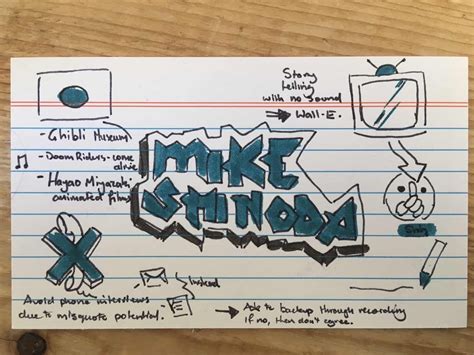 Story
telling
with no sound
→ Wall-E.
- Ghibli Museum
- Doom Riders - come
alive
- Hayao Miyazaki
animated films
MIKE
SHINODA
Avoid phone interviews
due to misquote potential.
Instead
→ Ask to backup through recording
if no, then don't agree.